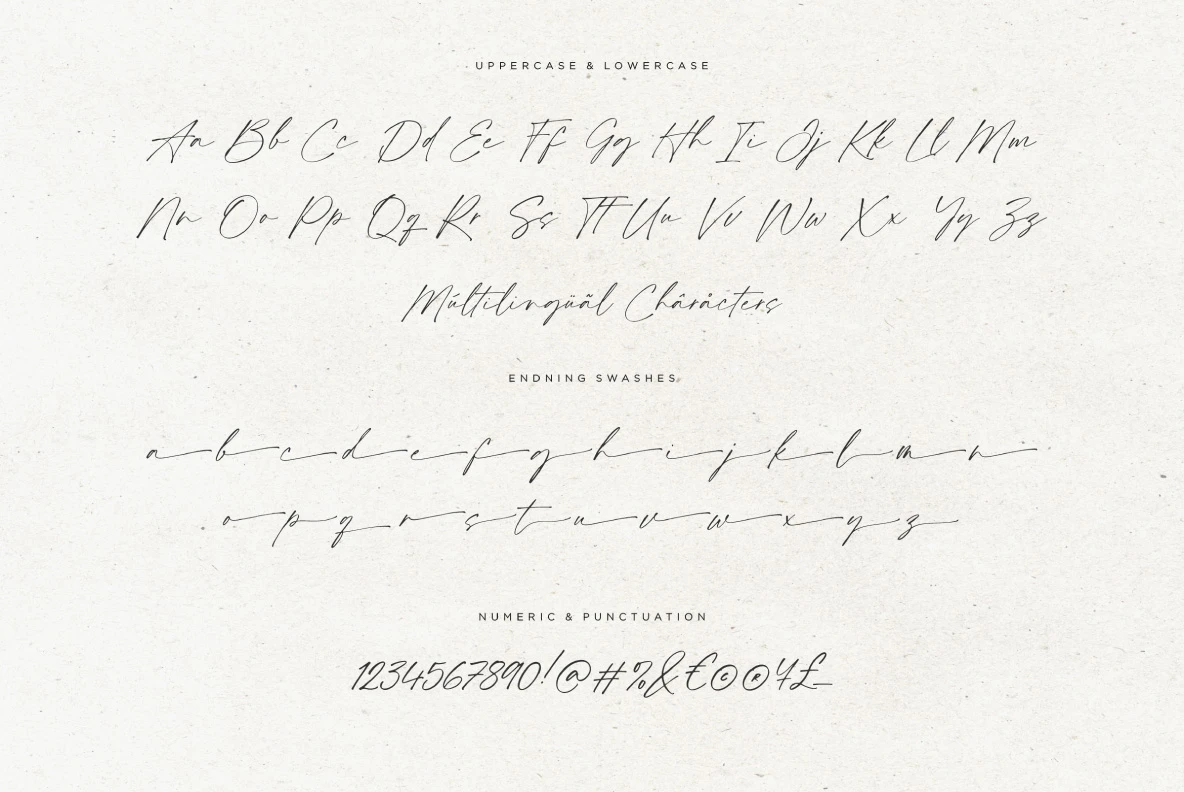 UPPERCASE & LOWERCASE
Aa Bb Cc Dd Ee Ff Gg Hh Ii Jj Kk Ll Mm
Nn Oo Pp Qq Rr Ss Tt Uu Vv Ww Xx Yy Zz
Múltilingüãl Châråcters
ENDNING SWASHES
a b c d e f g h i j k l m n
o p q r s t u v w x y z
NUMERIC & PUNCTUATION
1234567890!@#%&€©®¥£_